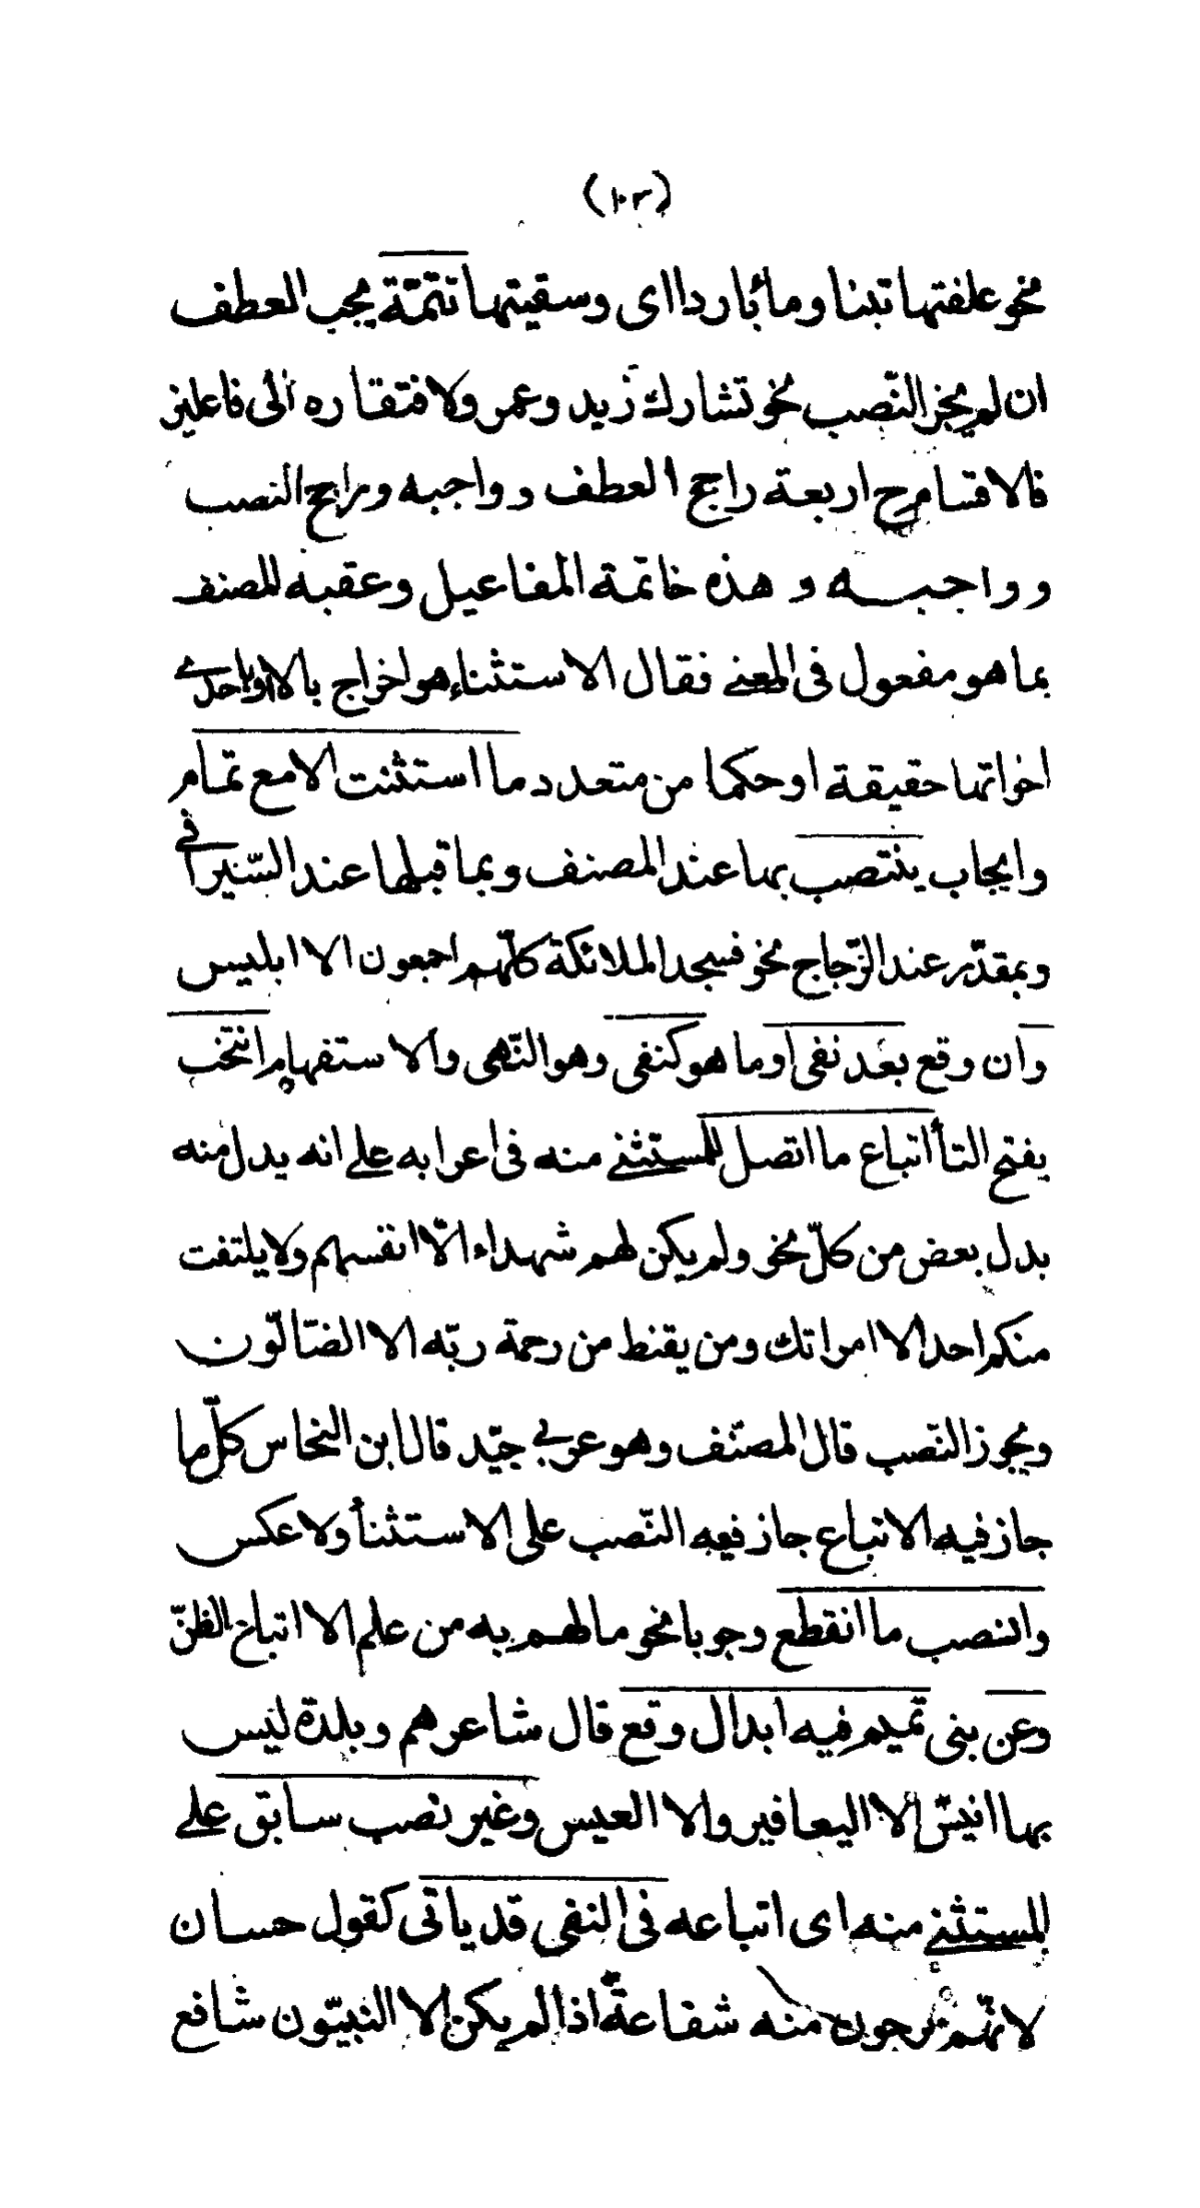 (١٠٣)
نحو علفتها تبنا وماءً باردا اى وسقيتها تتمّة يجب العطف
ان لم يجز النّصب نحو تشارك زيد وعمر ولافتقاره الى فاعلين
فالاقسام ح اربعة راجح العطف وواجبه وراجح النصب
وواجبه وهذه خاتمة المفاعيل وعقبه المصنف
بما هو مفعول فى المعنى فقال الاستثناء هو اخراج بالا او احدى
اخواتها حقيقة اوحكما من متعدد ما استثنت الا مع تمام
وايجاب ينتصب بها عند المصنف وبما قبلها عند السّيرافى
وبمقدّر عند الزّجاج نحو فسجد الملائكة كلّهم اجمعون الا ابليس
وان وقع بعد نفى اوما هو كنفى وهو النّهى والاستفهام انتخب
بفتح التأ اتباع ما اتصل للمستثنى منه فى اعرابه على انه بدل منه
بدل بعض من كلّ نحو ولم يكن لهم شهداء الّا انفسهم ولا يلتفت
منكم احد الا امراتك ومن يقنط من رحمة ربّه الا الضّالّون
ويجوز النّصب قال المصنّف وهو عربى جيّد قال ابن النحاس كلّ ما
جاز فيه الاتباع جاز فيه النّصب على الاستثنأ ولا عكس
وانصب ما انقطع وجوبا نحو ما لهم به من علم الا اتباع الظنّ
وعن بنى تميم فيه ابدال وقع قال شاعرهم وبلدة ليس
بها انيسٌ الا اليعافير والا العيس وغير نصب سابق على
المستثنى منه اى اتباعه فى النفى قد ياتى كقول حسان
لانّهم يرجون منه شفاعةً اذا لم يكن الا النبيّون شافع